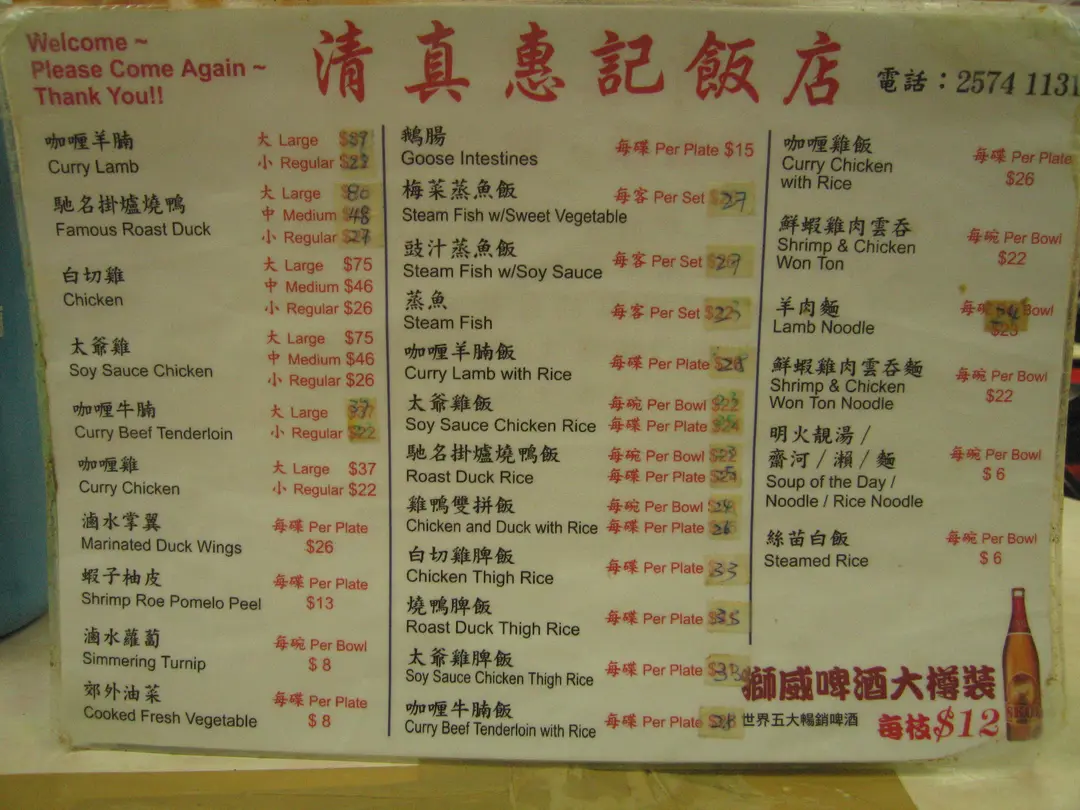 Welcome ~
Please Come Again ~
Thank You!!
清真惠記飯店
電話：2574 1131
咖喱羊腩 大 Large $39
Curry Lamb 小 Regular $23
馳名掛爐燒鴨 大 Large 80
Famous Roast Duck 中 Medium 48
小 Regular $27
白切雞 大 Large $75
Chicken 中 Medium $46
小 Regular $26
太爺雞 大 Large $75
Soy Sauce Chicken 中 Medium $46
小 Regular $26
咖喱牛腩 大 Large
Curry Beef Tenderloin 小 Regular $22
咖喱雞 大 Large $37
Curry Chicken 小 Regular $22
滷水掌翼 每碟 Per Plate
Marinated Duck Wings $26
蝦子柚皮 每碟 Per Plate
Shrimp Roe Pomelo Peel $13
滷水蘿蔔 每碗 Per Bowl
Simmering Turnip $ 8
郊外油菜 每碟 Per Plate
Cooked Fresh Vegetable $ 8
鵝腸 每碟 Per Plate $15
Goose Intestines
梅菜蒸魚飯 每客 Per Set 27
Steam Fish w/Sweet Vegetable
豉汁蒸魚飯 每客 Per Set 27
Steam Fish w/Soy Sauce
蒸魚 每客 Per Set 23
Steam Fish
咖喱羊腩飯 每碟 Per Plate $28
Curry Lamb with Rice
太爺雞飯 每碗 Per Bowl
Soy Sauce Chicken Rice 每碟 Per Plate
馳名掛爐燒鴨飯 每碗 Per Bowl
Roast Duck Rice 每碟 Per Plate $25
雞鴨雙拼飯 每碗 Per Bowl 24
Chicken and Duck with Rice 每碟 Per Plate 26
白切雞脾飯 每碟 Per Plate 33
Chicken Thigh Rice
燒鴨脾飯 每碟 Per Plate $35
Roast Duck Thigh Rice
太爺雞脾飯 每碟 Per Plate $33
Soy Sauce Chicken Thigh Rice
咖喱牛腩飯 每碟 Per Plate $28
Curry Beef Tenderloin with Rice
咖喱雞飯 每碟 Per Plate
Curry Chicken $26
with Rice
鮮蝦雞肉雲吞 每碗 Per Bowl
Shrimp & Chicken $22
Won Ton
羊肉麵 每碗 Bowl
Lamb Noodle 24
鮮蝦雞肉雲吞麵 每碗 Per Bowl
Shrimp & Chicken $22
Won Ton Noodle
明火靚湯／
齋河／瀨／麵 每碗 Per Bowl
Soup of the Day / $ 6
Noodle / Rice Noodle
絲苗白飯 每碗 Per Bowl
Steamed Rice $ 6
獅威啤酒大樽裝
世界五大暢銷啤酒 每枝$12